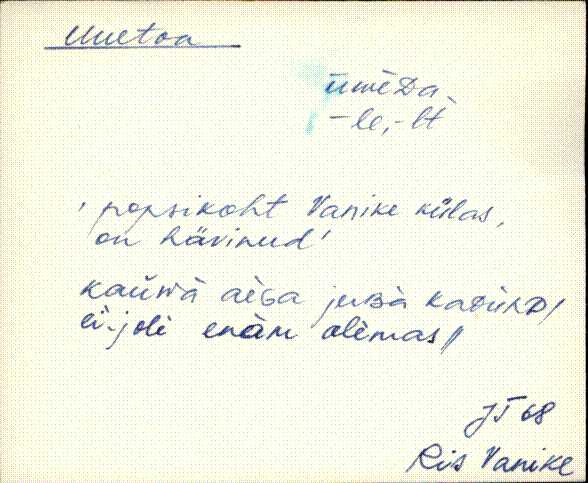 Uuetoa
ūmèDa,
-le, -lt
'popsikoht Vanike külas,
on hävinud'
kaùwà aèGa juBà kaDùnD/
èi-jolè enàm olèmas//
JT 68
Ris Vanike